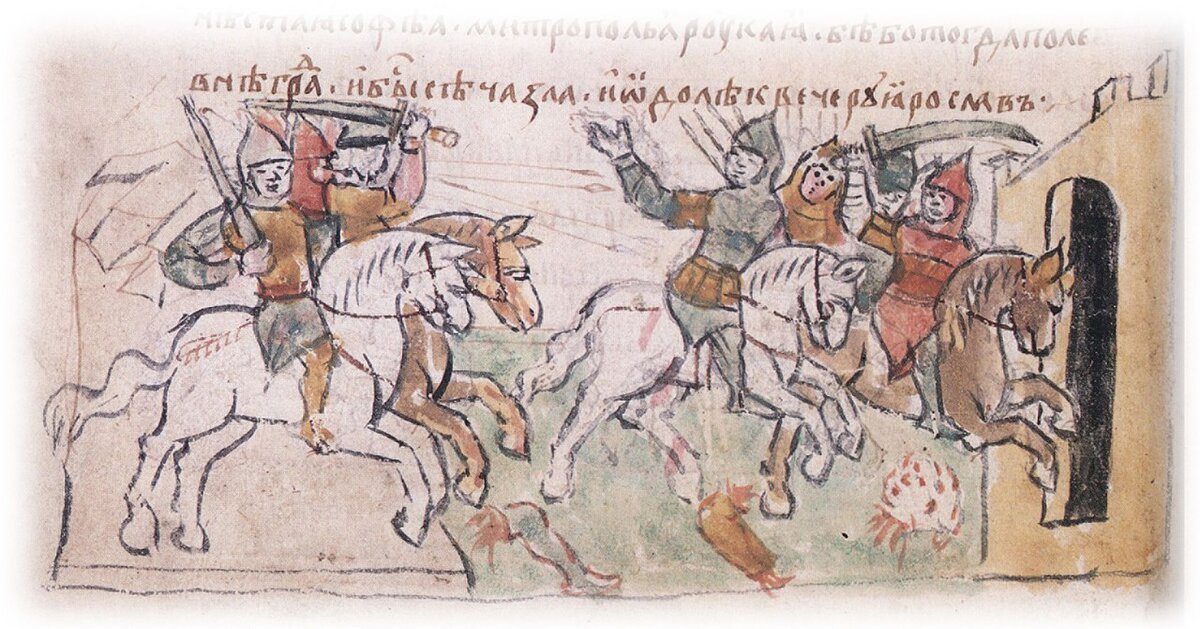 нѣ стаꙗ софѣꙗ · митропольꙗ роускаꙗ · бѣ бо тогда поле
внѣ граⷣа · и быⷭ сѣча зла · и ѡдолѣ к вечерꙋ ꙗрославъ ·